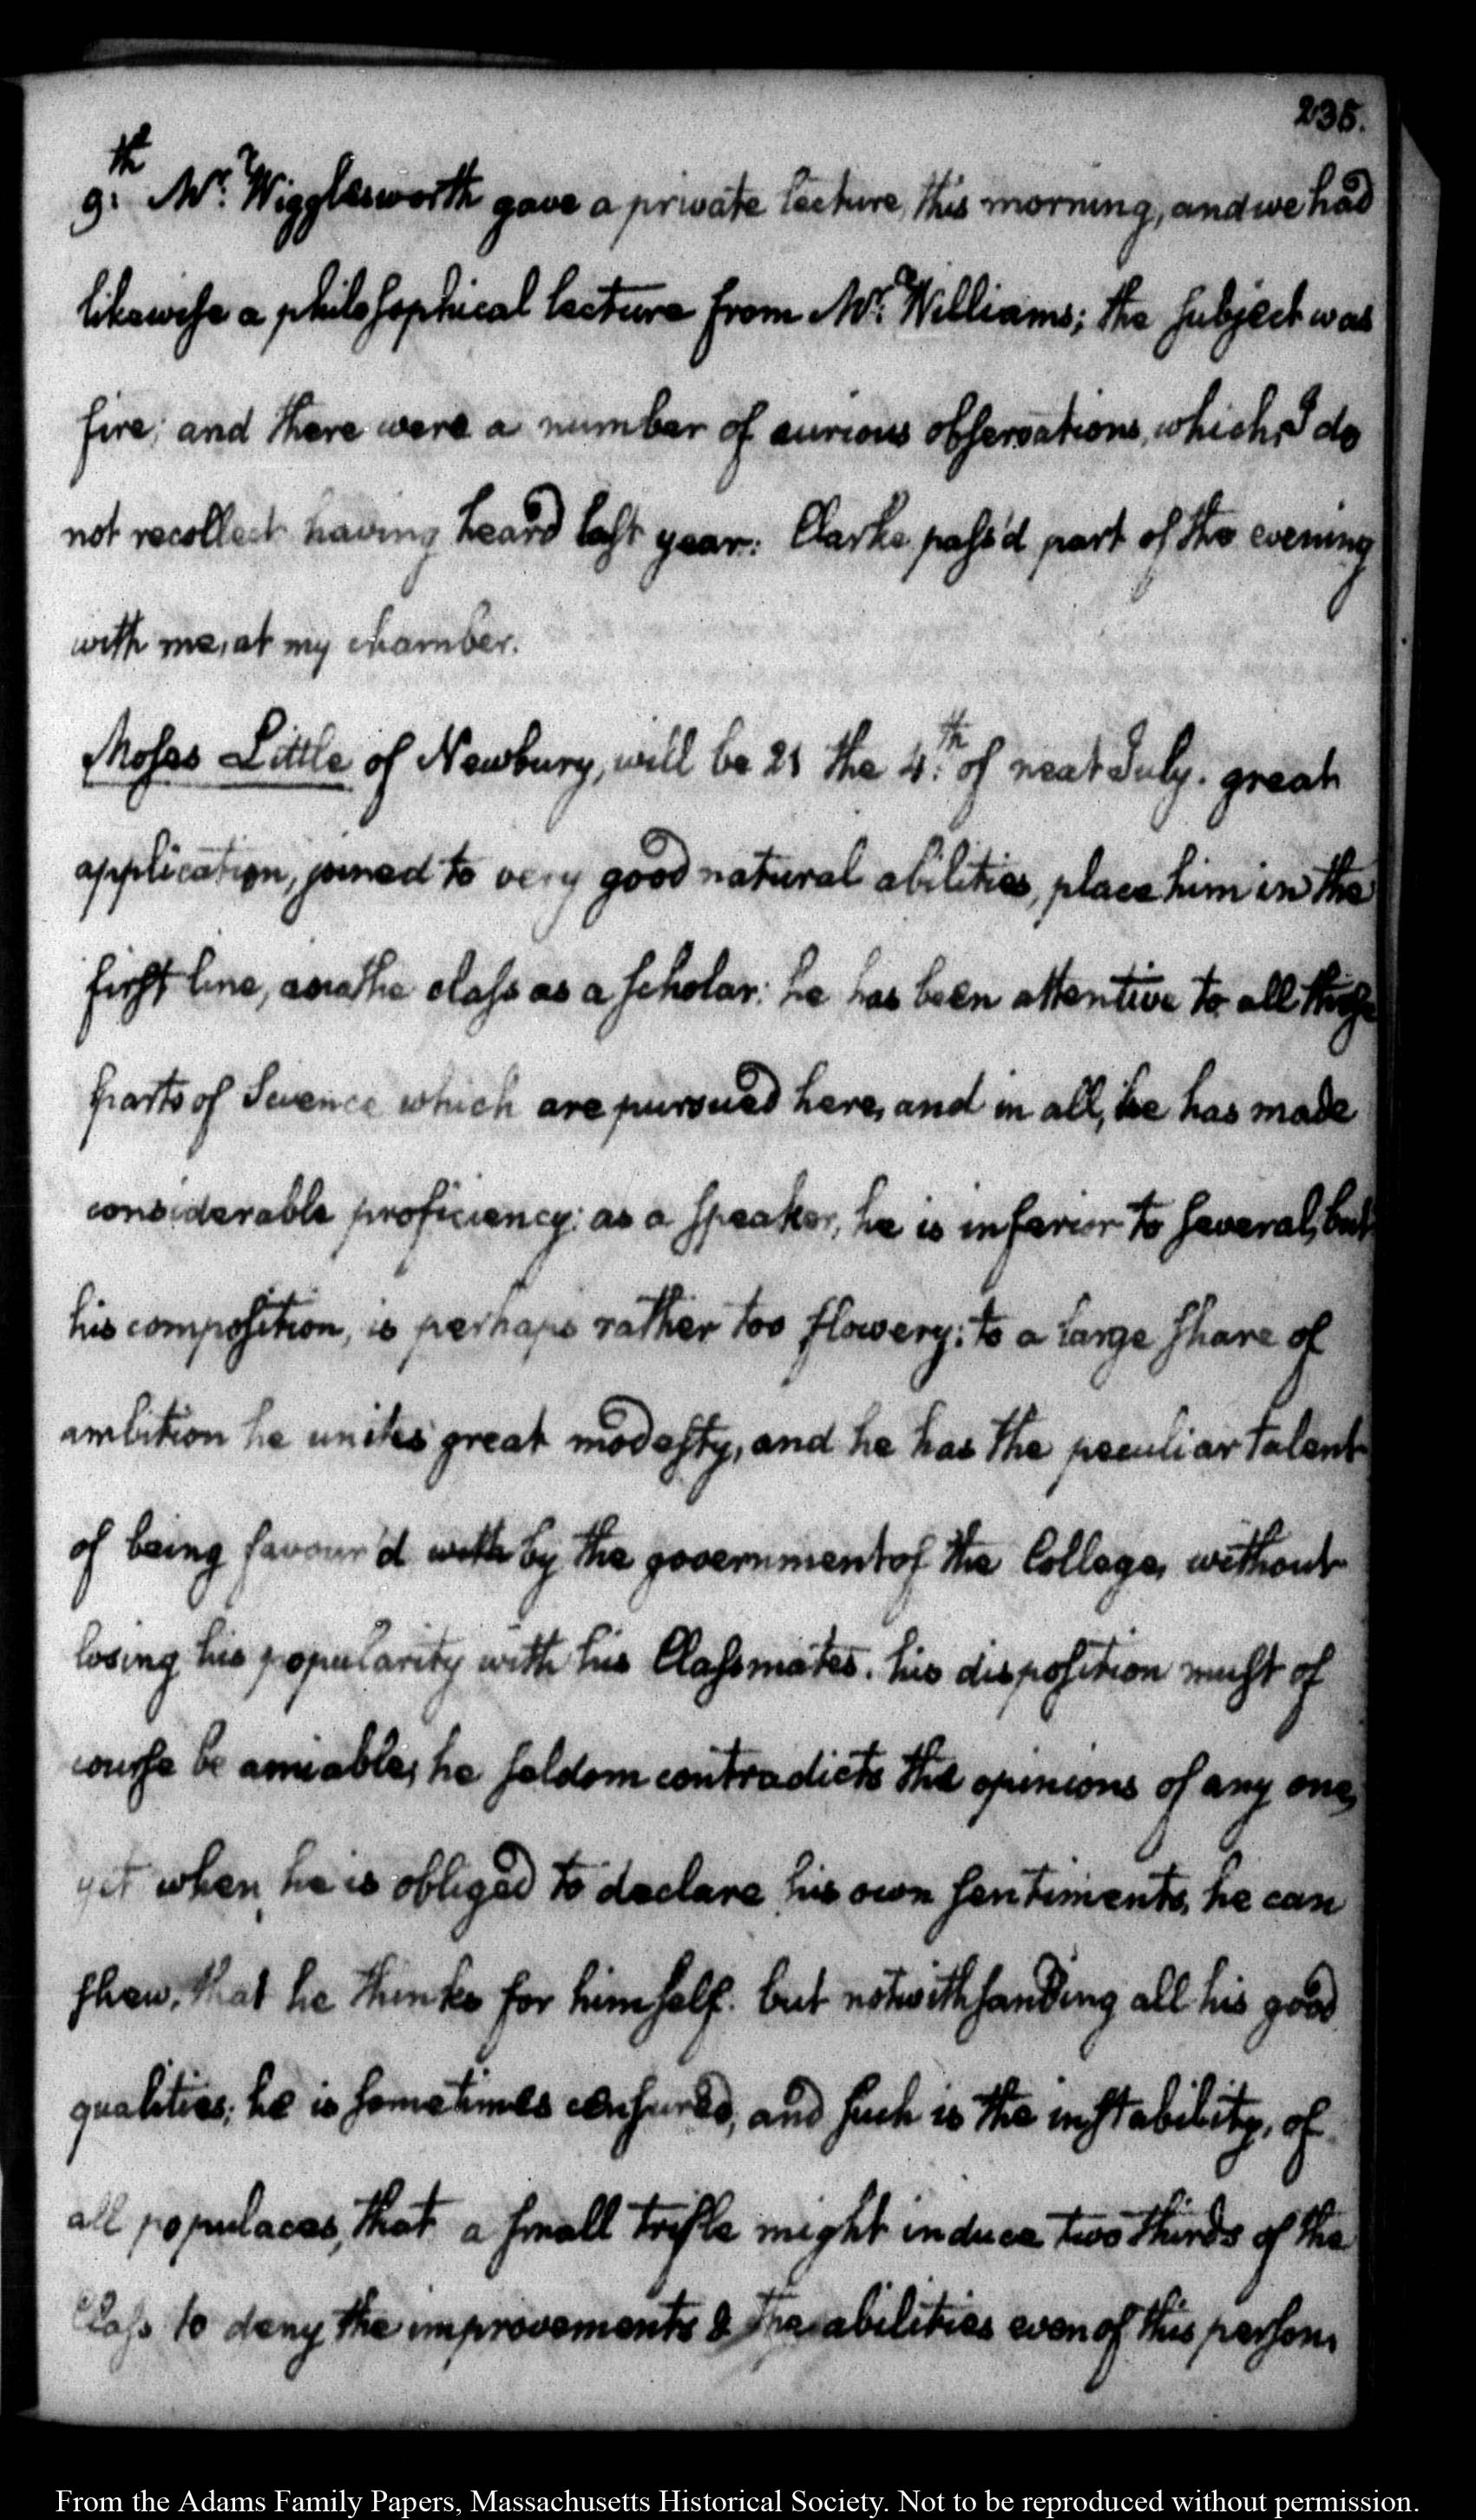 235.
9th. Mr. Wigglesworth gave a private lecture, this morning, and we had
likewise a philosophical lecture from Mr. Williams; the subject was
fire; and there were a number of curious observations, which, I do
not recollect having heard last year. Clarke pass'd part of the evening
with me, at my chamber.
Moses Little of Newbury, will be 21 the 4th. of next July. great
application, joined to very good natural abilities, place him in the
first line, in the class as a scholar: he has been attentive to all those
parts of Science which are pursued here, and in all, he has made
considerable proficiency: as a speaker, he is inferior to several, but
his composition, is perhaps rather too flowery: to a large share of
ambition he unites great modesty, and he has the peculiar talent
of being favour'd with by the government of the College, without
losing his popularity with his Classmates. his disposition must of
course be amiable, he seldom contradicts the opinions of any one,
yet when, he is obliged to declare his own sentiments, he can
shew, that he thinks for himself. but notwithsanding all his good
qualities; he is sometimes censured, and such is the instability, of
all populaces, that a small trifle might induce two thirds of the
Class to deny the improvements & the abilities even of this person,
From the Adams Family Papers, Massachusetts Historical Society. Not to be reproduced without permission.